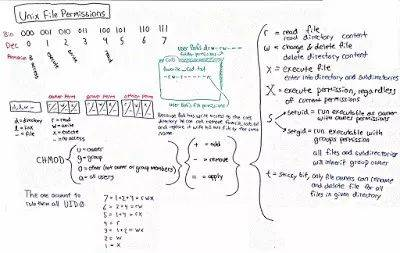 Unix File Permissions
Bin 000 001 010 011 100 101 110 111
Dec 0 1 2 3 4 5 6 7
no access
execute
write
read
User Bob's drw-rw----
folder permissions
User Bob's file permissions
owner perm group perm other perm
d = directory r = read
l = link w = write
- = file x = execute
- = no access
Because Bob has write access to the cats
same name
CHMOD
u = owner
g = group
o = other (not owner or group members)
a = all users
+ = add
- = remove
= = apply
r = read file
read directory content
w = change & delete file
delete directory content
x = execute file
enter into directory and subdirectories
X = execute permission, regardless
of current permissions
s
setuid = run executable as owner
with owners permissions
setgid = run executable with
groups permission
all files and subdirectories
will inherit group owner
t = sticky bit, only file owners can rename
and delete file for all
files in given directory
The one account to
rule them all UID0
7 = 1+2+4 = rwx
6 = 2+4 = rw
5 = 1+4 = rx
4 = r
3 = 1+2 = wx
2 = w
1 = x